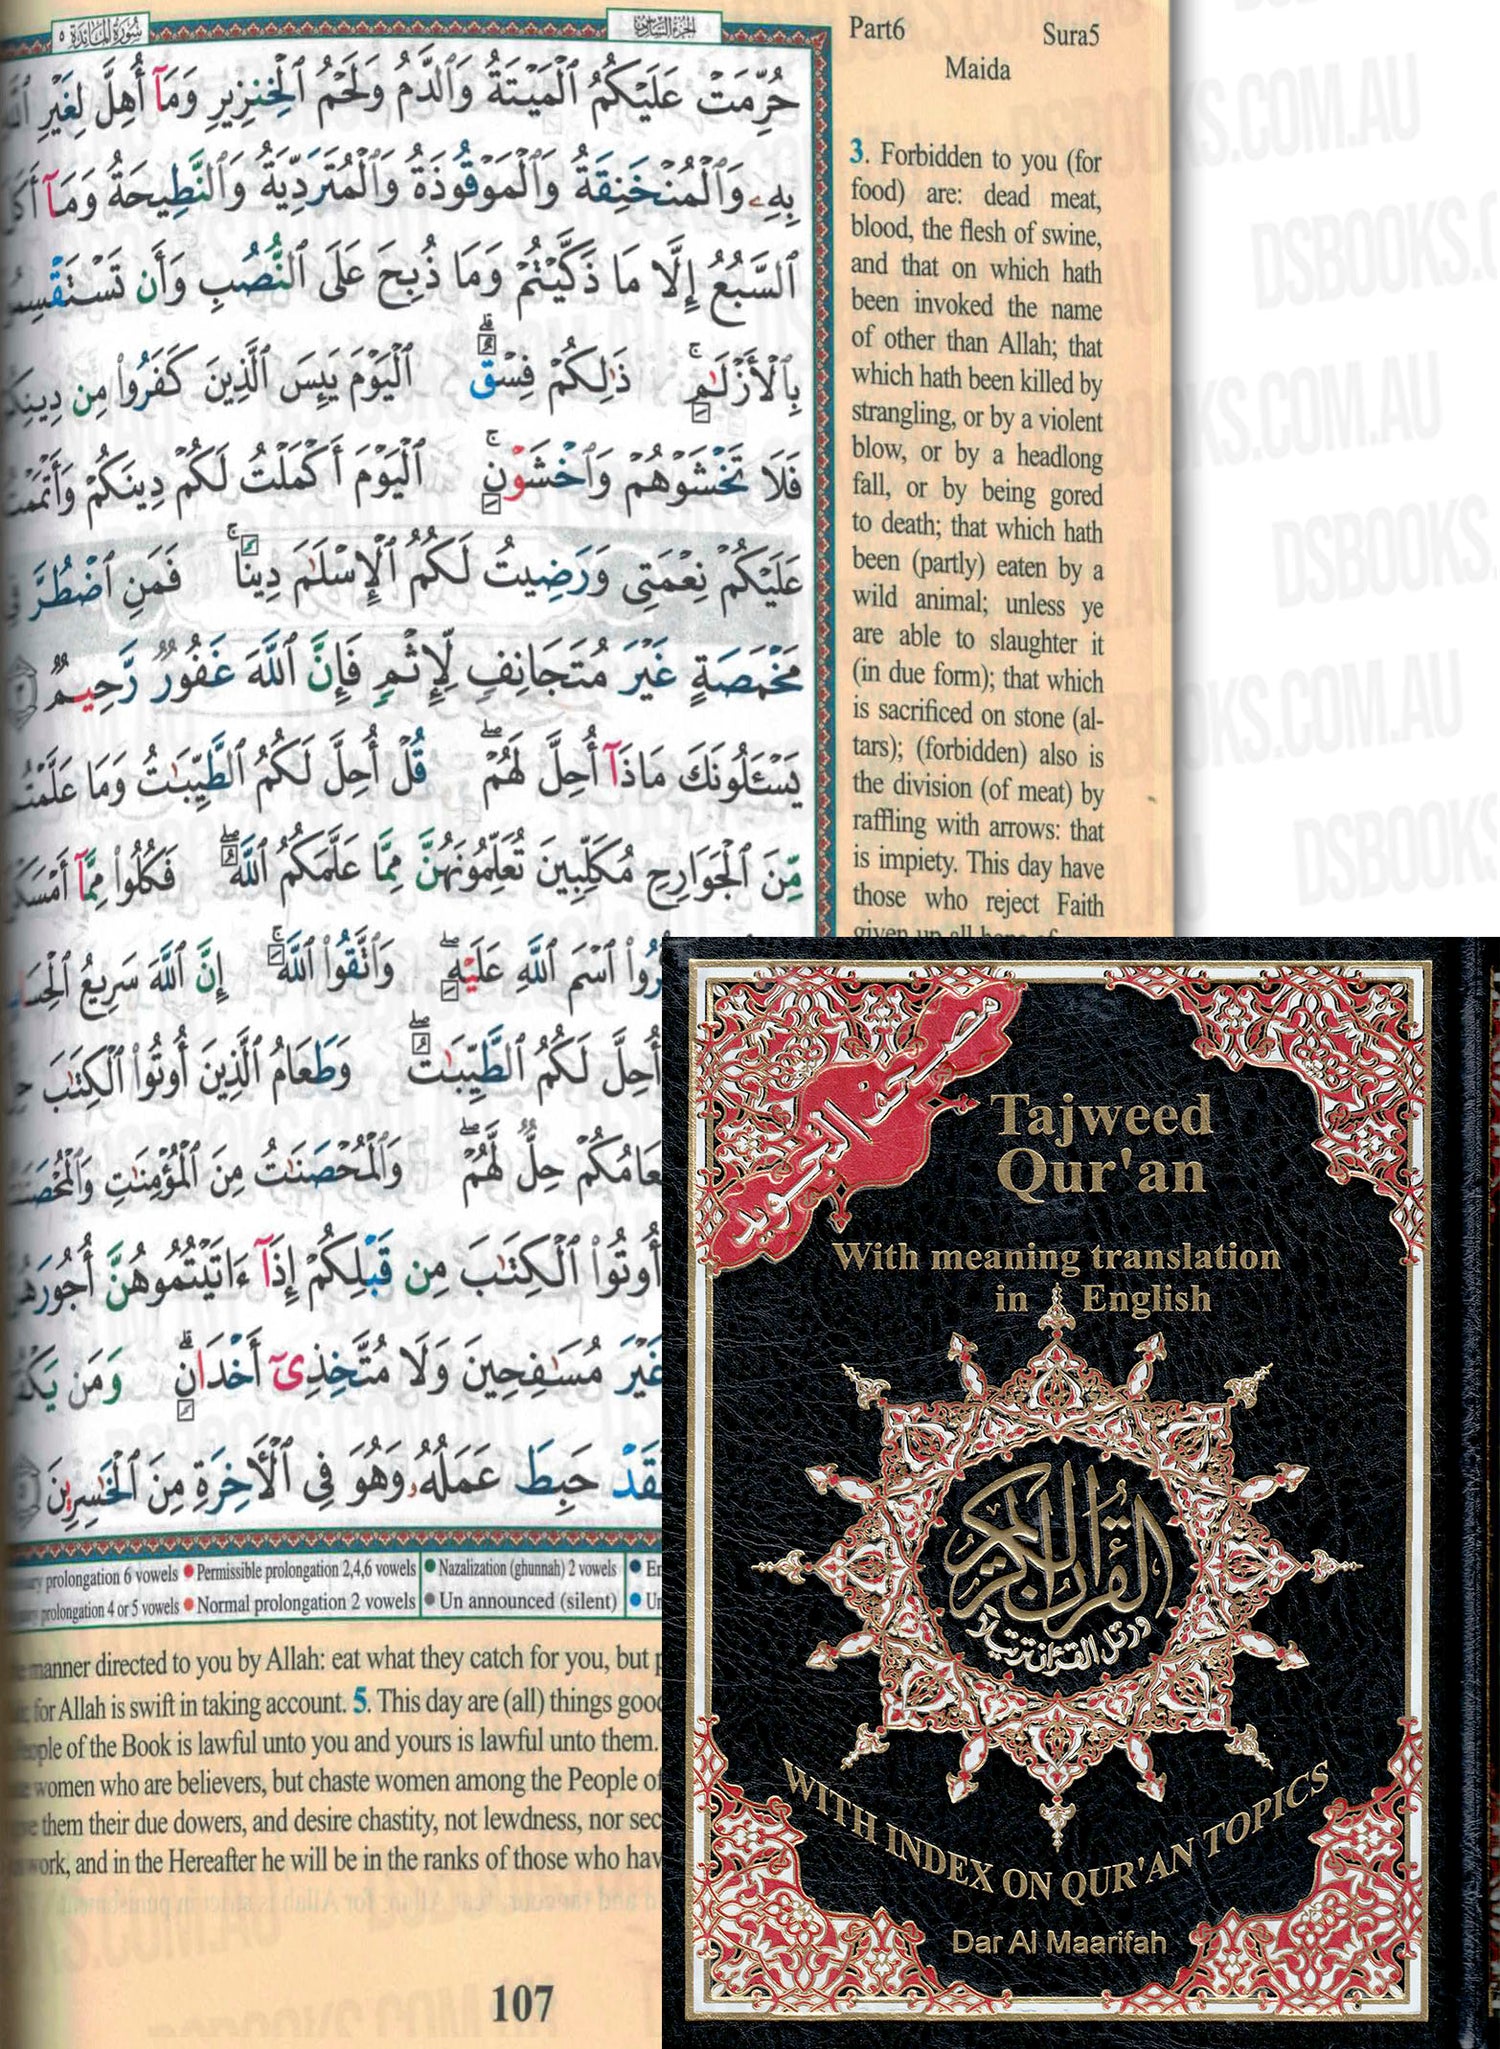 سورة المائدة ٥
الجزء السادس
Part6 Sura5
Maida
حُرِّمَتْ عَلَيْكُمُ ٱلْمَيْتَةُ وَٱلدَّمُ وَلَحْمُ ٱلْخِنزِيرِ وَمَآ أُهِلَّ لِغَيْرِ
بِهِۦ وَٱلْمُنْخَنِقَةُ وَٱلْمَوْقُوذَةُ وَٱلْمُتَرَدِّيَةُ وَٱلنَّطِيحَةُ وَمَآ
ٱلسَّبُعُ إِلَّا مَا ذَكَّيْتُمْ وَمَا ذُبِحَ عَلَى ٱلنُّصُبِ وَأَن
بِٱلْأَزْلَٰمِ ۚ ذَٰلِكُمْ فِسْقٌ ۗ ٱلْيَوْمَ يَئِسَ ٱلَّذِينَ كَفَرُوا۟ مِن
فَلَا تَخْشَوْهُمْ وَٱخْشَوْنِ ۚ ٱلْيَوْمَ أَكْمَلْتُ لَكُمْ دِينَكُمْ
عَلَيْكُمْ نِعْمَتِى وَرَضِيتُ لَكُمُ ٱلْإِسْلَٰمَ دِينًا ۚ فَمَنِ ٱضْطُرَّ
مَخْمَصَةٍ غَيْرَ مُتَجَانِفٍ لِّإِثْمٍ فَإِنَّ ٱللَّهَ غَفُورٌ رَّحِيمٌ
يَسْـَٔلُونَكَ مَاذَآ أُحِلَّ لَهُمْ ۖ قُلْ أُحِلَّ لَكُمُ ٱلطَّيِّبَٰتُ وَمَا
مِّنَ ٱلْجَوَارِحِ مُكَلِّبِينَ تُعَلِّمُونَهُنَّ مِمَّا عَلَّمَكُمُ ٱللَّهُ ۖ فَكُلُوا۟ مِمَّآ
ٱسْمَ ٱللَّهِ عَلَيْهِ ۖ وَٱتَّقُوا۟ ٱللَّهَ ۚ إِنَّ ٱللَّهَ سَرِيعُ
أُحِلَّ لَكُمُ ٱلطَّيِّبَٰتُ ۖ وَطَعَامُ ٱلَّذِينَ أُوتُوا۟ ٱلْكِتَٰبَ
حِلٌّ لَّهُمْ ۖ وَٱلْمُحْصَنَٰتُ مِنَ ٱلْمُؤْمِنَٰتِ
أُوتُوا۟ ٱلْكِتَٰبَ مِن قَبْلِكُمْ إِذَآ ءَاتَيْتُمُوهُنَّ
غَيْرَ مُسَٰفِحِينَ وَلَا مُتَّخِذِىٓ أَخْدَانٍ ۗ وَمَن
حَبِطَ عَمَلُهُۥ وَهُوَ فِى ٱلْـَٔاخِرَةِ مِنَ ٱلْخَٰسِرِينَ
3. Forbidden to you (for
food) are: dead meat,
blood, the flesh of swine,
and that on which hath
been invoked the name
of other than Allah; that
which hath been killed by
strangling, or by a violent
blow, or by a headlong
fall, or by being gored
to death; that which hath
been (partly) eaten by a
wild animal; unless ye
are able to slaughter it
(in due form); that which
is sacrificed on stone (al-
tars); (forbidden) also is
the division (of meat) by
raffling with arrows: that
is impiety. This day have
those who reject Faith
given up all
prolongation 6 vowels Permissible prolongation 2,4,6 vowels Nazalization (ghunnah) 2 vowels
prolongation 4 or 5 vowels Normal prolongation 2 vowels Un announced (silent)
manner directed to you by Allah: eat what they catch for you, but
for Allah is swift in taking account. 5. This day are (all) things good
of the Book is lawful unto you and yours is lawful unto them.
women who are believers, but chaste women among the People of
them their due dowers, and desire chastity, not lewdness, nor
and in the Hereafter he will be in the ranks of those who
107
مصحف التجويد
Tajweed
Qur'an
With meaning translation
in English
القرآن الكريم
ورتل القرآن ترتيلا
WITH INDEX ON QUR'AN TOPICS
Dar Al Maarifah
DSBOOKS.COM.AU